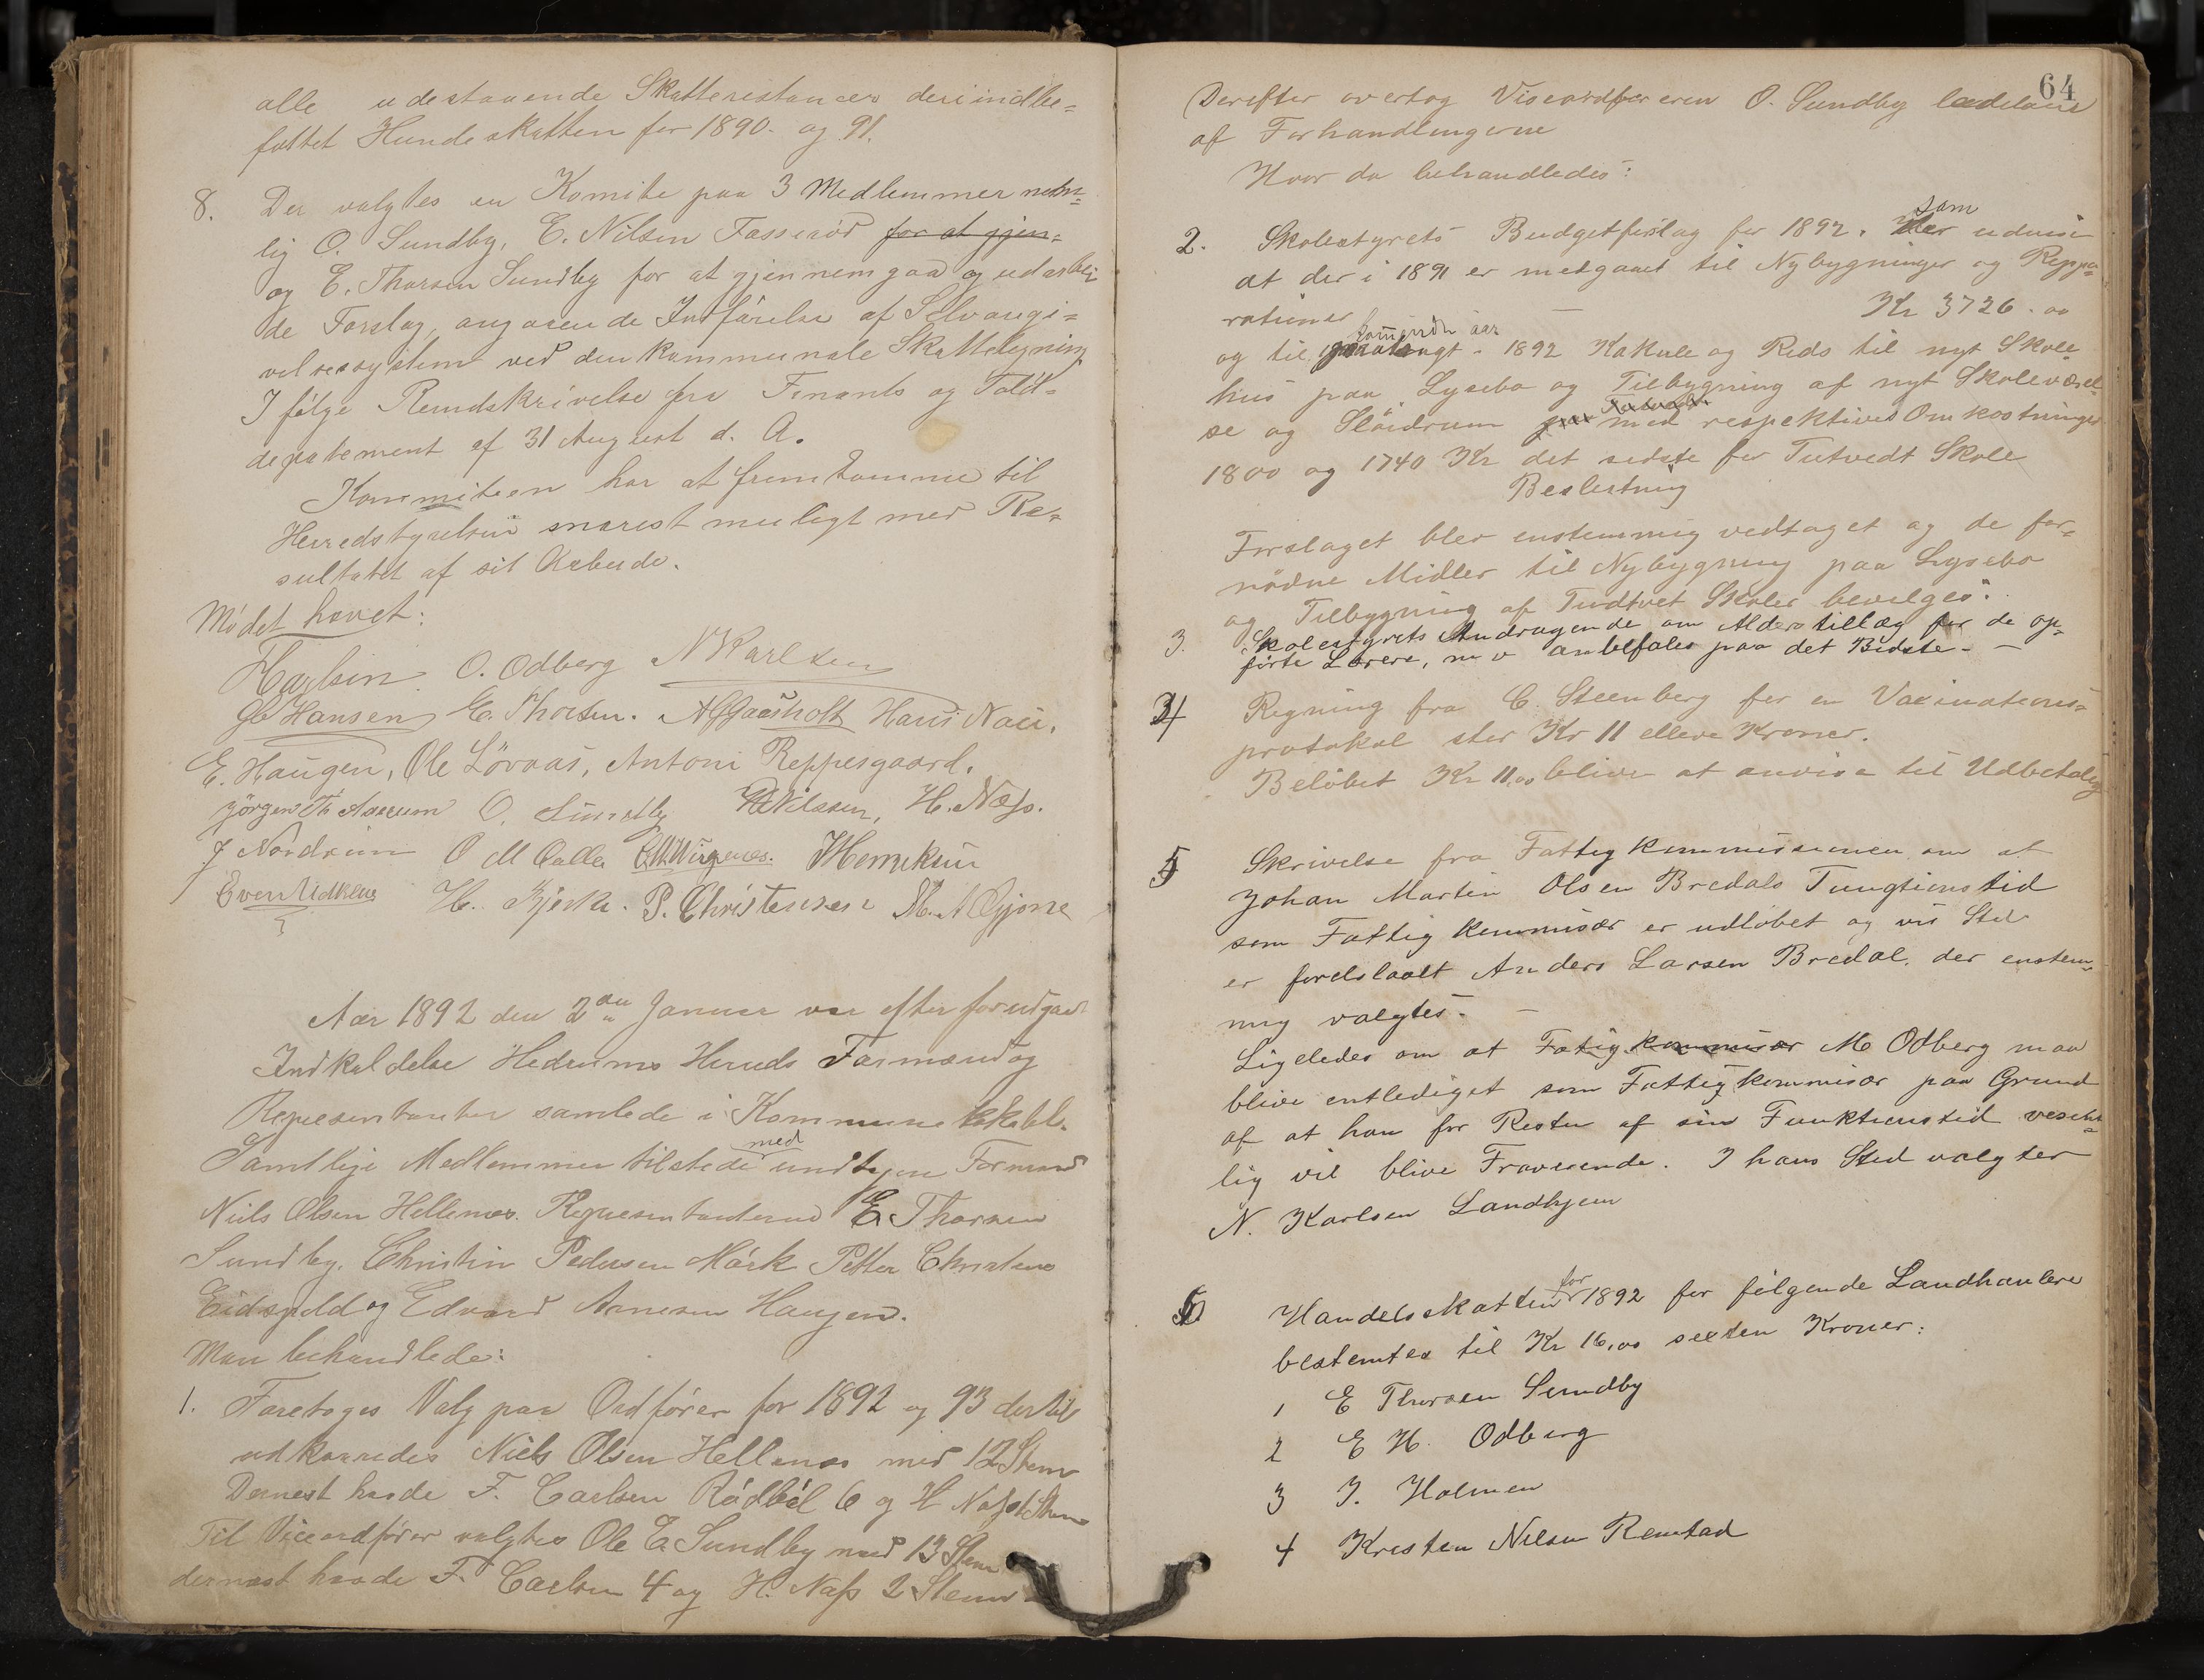 alle udestaaende Skatterestancer deriindbe=
fattet Hundeskatten for 1890. og 91.
8. Der valgtes en Komite paa 3 Medlemmer nem=
lig O. Sundby, E. Nilsen Fasserød for at gjen=
og E. Thorsen Sundby for at gjennemgaa og udarbei
de Forslag angaaende Indførelse af Selvangi=
velsessystem ved den kommunale Skatteligning
I følge Rundskrivelse fra Finants og Told=
departement af 31 August d. A.
Kommiteen har at fremkomme til
Herredstyrelsen snarest muligt med Re=
sultatet af sit Arbeide.
Mødet hævet:
F Carlsen O. Odberg N Karlsen
Hansen E. Thorsen. A Gaasholt Hans Næs.
E. Haugen, Ole Løvaas, Antoni Reppesgaard.
Jörgen Th Aaerum O. Sundby Nilssen, H. Næss.
J Nordrum O M Dalle Henriksen
Even H. Bjerke. P. Christensen M. A Gjone
Aar 1892 den 2en Januar var efter forudgaad
Indkaldelse Hedrums Herreds Formænd og
Representanter samlede i Kommunelokalet.
Samtlige Medlemmer tilstede med undtagen Formand
Niels Olsen Hellenæs. Representanterne E. Thorsen
Sundby. Christian Pedersen Mørk Petter Christens
Eidsfeld og Edvard Arnesen Haugen.
Man behandlede:
1. Foretoges Valg paa Ordfører for 1892 og 93 dertil
udkaaredes Niels Olsen Hellenæs med 12 Stem
Dernest havde F. Carlsen Rødbøl 6 og H Næss 1 Stem
Til Viceordfører valgtes Ole E. Sundby med 13 Stem
dernæst havde F. Carlsen 4 og H. Næss 2 Stem
64
Derefter overtog Viseordføreren O. Sundby ledelsen
af Forhandlingerne
Hvor da behandledes:
2. Skolestyrets Budgetforslag for 1892. som udviser
at der i 1891 er medgaaet til Nybygninger og Reppa=
rationer — Kr 3726.00
og til aar 1892 Kakule og Reds til nyt Skole
hus paa Lysebo og Tilbygning af nyt Skoleværel
se og Slöidrum med respektives Omkostninger
1800 og 1740 Kr det sidste for Tutvedt Skole
Beslutning
Forslaget blev enstemmig vedtaget og de for=
nødne Midler til Nybygning paa Lysebo
og Tilbygning af Tudtvet Skoler bevilges.
3. Skolestyrets Andragende om Alderstillæg for de op=
førte Lærere, m v anbefales paa det Bedste. —
4 Regning fra C. Steenberg for en Vaxinations=
protokol stor Kr 11 elleve Kroner.
Beløbet Kr 11.00 bliver at anvise til Udbetaling
5 Skrivelse fra Fattigkommissionen om at
Johan Martin Olsen Bredals Fungtionstid
som Fattigkommisær er udløbet og vis Sted
er foreslaalt Anders Larsen Bredal, der enstem=
mig valgtes. —
Ligeledes om at Fatigkommisær M Odberg maa
blive entlediget som Fattigkommisær paa Grund
af at han for Resten af sin Funktionstid vesent=
lig vil blive Fraværende. I hans Sted valgtes
N. Karlsen Landhjem
6 Handelsskatten for 1892 for følgende Landhanlere
bestemtes til Kr 16,00 sexten Kroner:
1 E Thorsen Sundby
2 E H. Odberg
3 J. Holmen
4 Kristen Nilsen Remtad